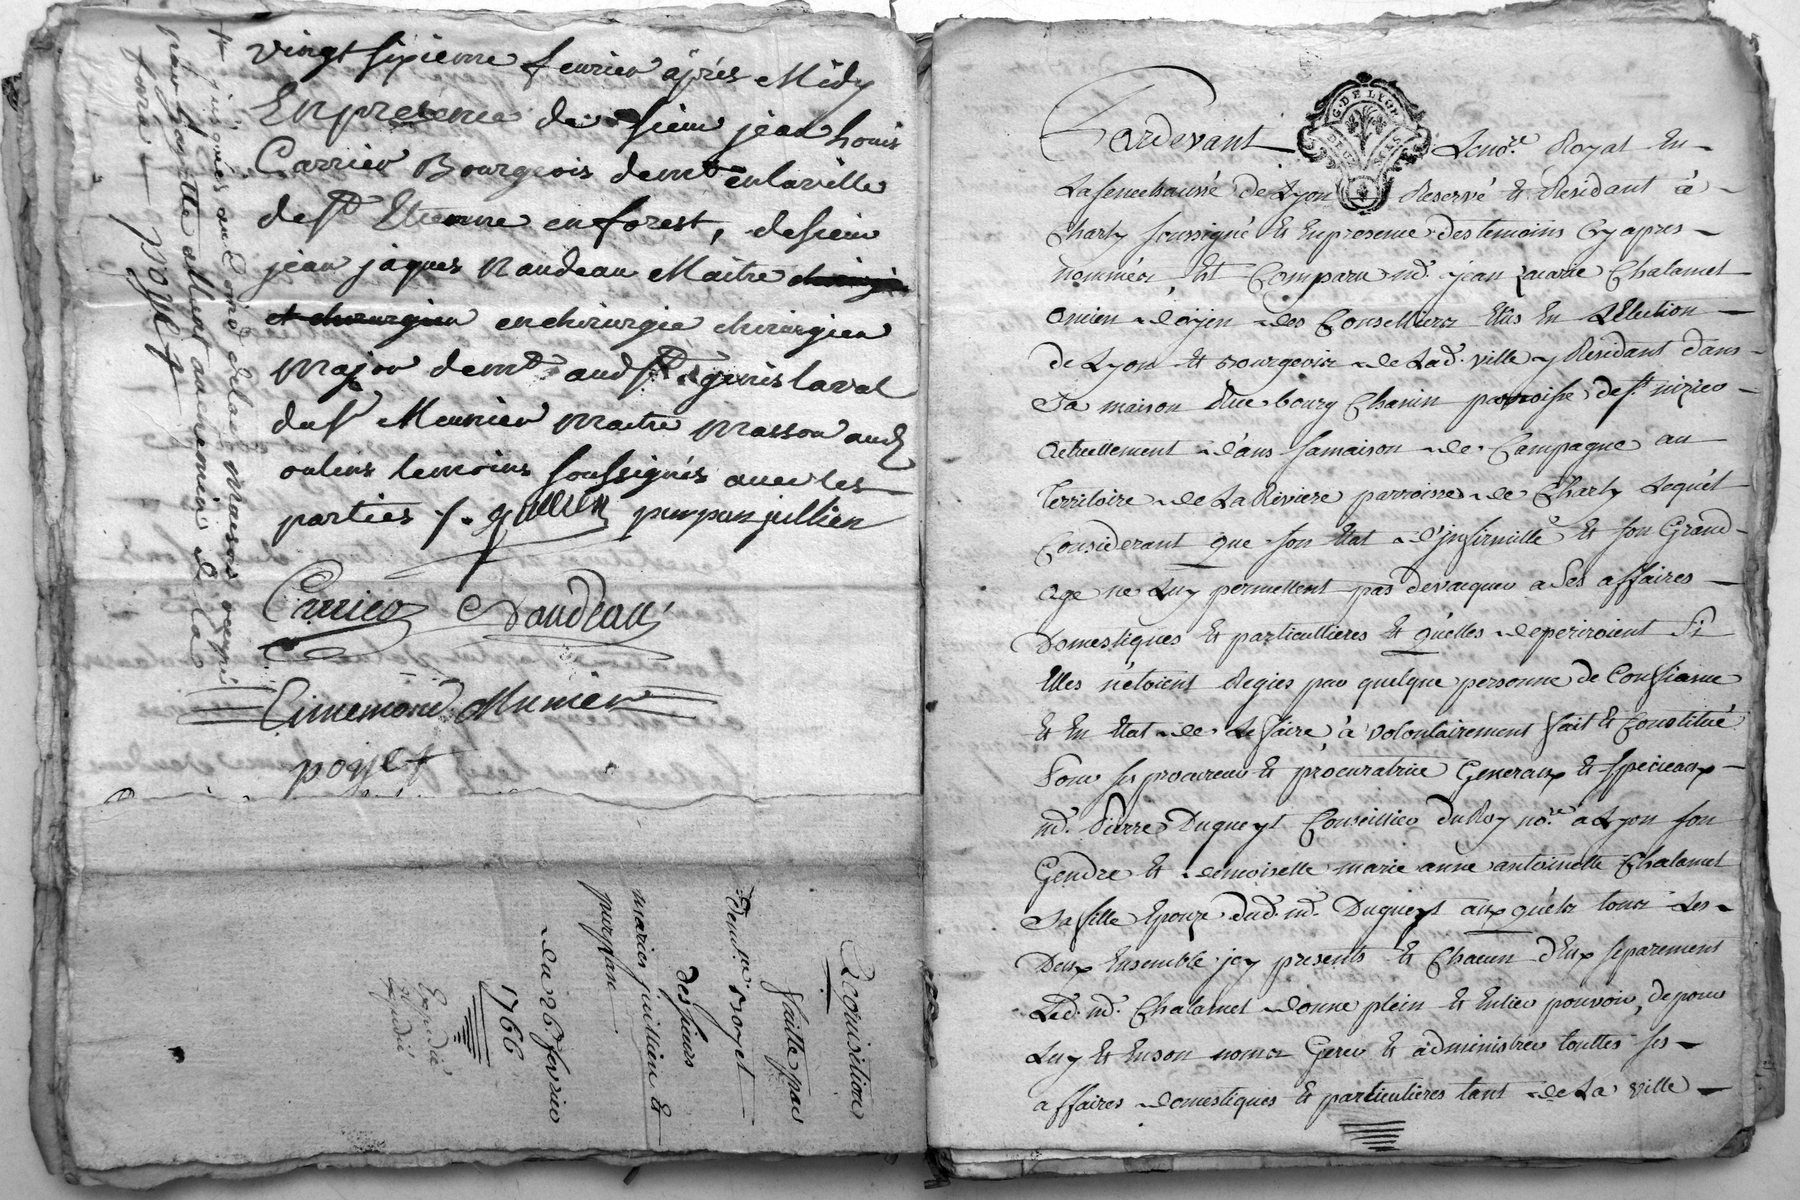 vingt sixieme fevrier après Midy
En presence de sieur jean Louis
Carrier Bourgeois demt en laville
de st Etienne en forest, de sieur
jean jaques Naudeau Maitre
et chirurgien en chirurgie chirurgien
Major demt audt st genis laval
du sr Meunier Maitre Masson aud
oulins temoins soussignés avec les
parties /. jullien purpan jullien
Carrier Naudeau
Munier
poyet
+ jusques au Coin de la Maison occupé
par
poyet
Acquisition
faitte par
Demlle Boyet
des sieurs
maries juillien &
purpan
du 26 fevrier
1766
Expedié
expedié
G. DE LYON
Pardevant Le nore. Royal En
La senechaussé de Lyon Reservé & Residant à
Charly soussigné & En presence des temoins Cy apres
nommés, Est Comparu md. jean marie Chalamel
ancien doyen des Conselliers Elus En L'Election
de Lyon & Bourgeois de Lad. ville y Residant dans
Sa maison Rue bourg Chanin parroisse de st. nizier
actuellement dans sa maison de Campagne au
Territoire de La Riviere parroisse de Charly Lequel
Considerant que son Etat d'jnfirmitté & son Grand
age ne Luy permettent pas de vacquer a Ses affaires
Domestiques & particullieres & quelles deperiroient Si
Elles n'etoient Regies par quelque personne de Confiance
& En Etat de Le faire, à volontairement fait & Constitué
Pour ses procureur & procuratrice Generaux & speciaux
md. Pierre Dugueyt Conseillier du Roy nore. a Lyon son
Gendre & demoiselle marie anne antoinette Chalamel
Sa fille Epouze dud. md. Dugueyt aux quels tous Les
Deux Ensemble jcy presents & Chacun d'Eux separement
Led. md. Chalamel donne plein & Entier pouvoir, de pour
Luy & En son nom Gerer & administrer touttes ses
affaires domestiques & particulieres tant de La ville